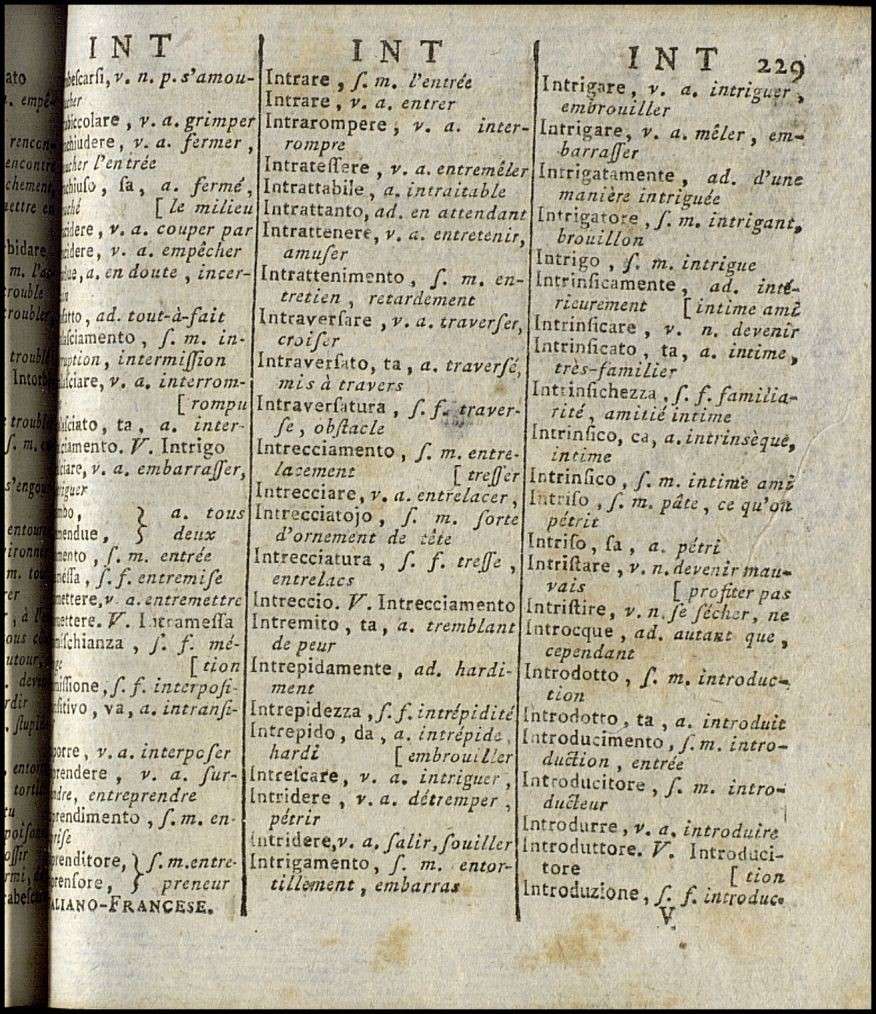 INT
bescarſi, v. n. p. s'amou-
cher
biccolare, v. a. grimper
chiudere, v. a. fermer,
ucher l'entrée
chiuſo, ſa, a. fermé,
uché [ le milieu
cidere, v. a. couper par
cidere, v. a. empêcher
a. en doute, incer-
fatto, ad. tout-à-fait
laſciamento, ſ. m. in-
ruption, intermiſſion
laſciare, v. a. interrom-
[ rompu
laſciato, ta, a. inter-
ciamento. V. Intrigo
lciare, v. a. embarraſſer,
riguer
mbo, } a. tous
mendue, } deux
mento, ſ. m. entrée
meſſa, ſ. f. entremiſe
mettere, v. a. entremettre
mettere. V. Intrameſſa
miſchianza, ſ. f. mé-
ge [ tion
miſſione, ſ. f. interpoſi-
ſitivo, va, a. intranſi-
porre, v. a. interpoſer
prendere, v. a. ſur-
ndre, entreprendre
prendimento, ſ. m. en-
riſe
prenditore, } ſ. m. entre-
prenſore, } preneur
ALIANO-FRANCESE.
INT
Intrare, ſ. m. l'entrée
Intrare, v. a. entrer
Intrarompere, v. a. inter-
rompre
Intrateſſere, v. a. entremêler
Intrattabile, a. intraitable
Intrattanto, ad. en attendant
Intrattenere, v. a. entretenir,
amuſer
Intrattenimento, ſ. m. en-
tretien, retardement
Intraverſare, v. a. traverſer,
croiſer
Intraverſato, ta, a. traverſé,
mis à travers
Intraverſatura, ſ. f. traver-
ſe, obſtacle
Intrecciamento, ſ. m. entre-
lacement [ treſſer
Intrecciare, v. a. entrelacer,
Intrecciatojo, ſ. m. ſorte
d'ornement de tête
Intrecciatura, ſ. f. treſſe,
entrelacs
Intreccio. V. Intrecciamento
Intremito, ta, a. tremblant
de peur
Intrepidamente, ad. hardi-
ment
Intrepidezza, ſ. f. intrépidité
Intrepido, da, a. intrépide,
hardi [ embrouiller
Intreſcare, v. a. intriguer,
Intridere, v. a. détremper,
pétrir
Intridere, v. a. ſalir, ſouiller
Intrigamento, ſ. m. entor-
tillement, embarras
INT 229
Intrigare, v. a. intriguer,
embrouiller
Intrigare, v. a. mêler, em-
barraſſer
Intrigatamente, ad. d'une
manière intriguée
Intrigatore, ſ. m. intrigant,
brouillon
Intrigo, ſ. m. intrigue
Intrinſicamente, ad. inté-
rieurement [ intime ami
Intrinſicare, v. n. devenir
Intrinſicato, ta, a. intime,
très-familier
Intrinſichezza, ſ. f. familia-
rité, amitié intime
Intrinſico, ca, a. intrinsèque,
intime
Intrinſico, ſ. m. intime ami
Intriſo, ſ. m. pâte, ce qu'on
pétrit
Intriſo, ſa, a. pétri
Intriſtare, v. n. devenir mau-
vais [ profiter pas
Intriſtire, v. n. ſe ſécher, ne
Introcque, ad. autant que,
cependant
Introdotto, ſ. m. introduc-
tion
Introdotto, ta, a. introduit
Introducimento, ſ. m. intro-
duction, entrée
Introducitore, ſ. m. intro-
ducteur
Introdurre, v. a. introduire
Introduttore. V. Introduci-
tore [ tion
Introduzione, ſ. f. introduc-
V